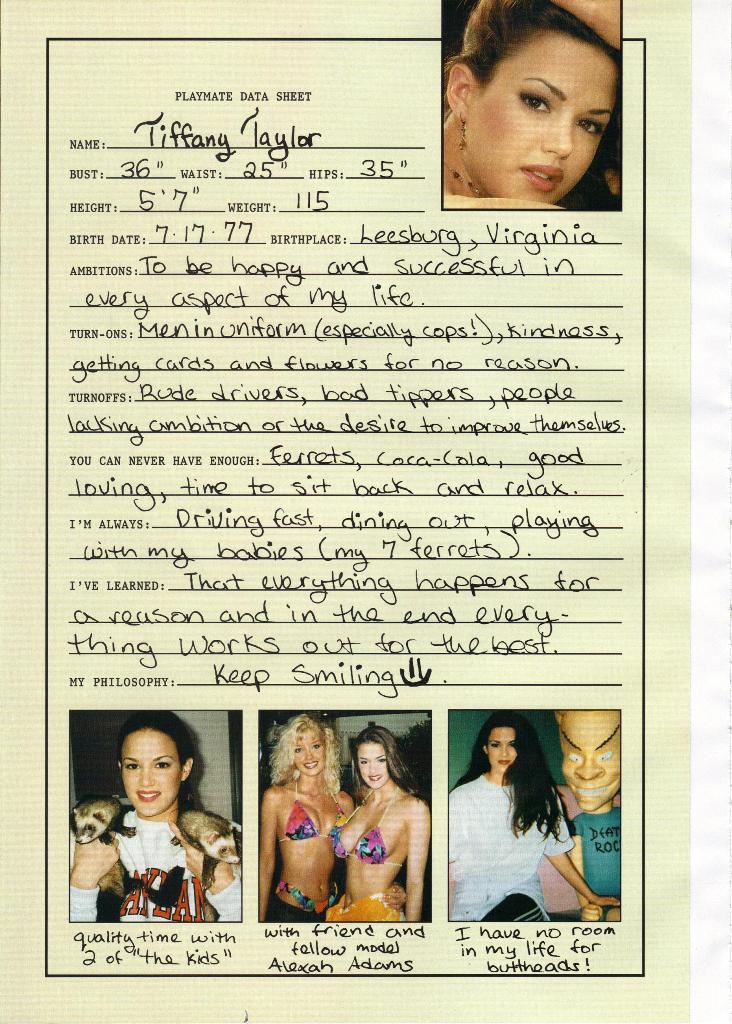 PLAYMATE DATA SHEET
NAME: Tiffany Taylor
BUST: 36" WAIST: 25" HIPS: 35"
HEIGHT: 5'7" WEIGHT: 115
BIRTH DATE: 7·17·77 BIRTHPLACE: Leesburg, Virginia
AMBITIONS: To be happy and successful in
every aspect of my life.
TURN-ONS: Men in uniform (especially cops!), kindness,
getting cards and flowers for no reason.
TURNOFFS: Rude drivers, bad tippers, people
lacking ambition or the desire to improve themselves.
YOU CAN NEVER HAVE ENOUGH: Ferrets, Coca-Cola, good
loving, time to sit back and relax.
I'M ALWAYS: Driving fast, dining out, playing
with my babies (my 7 ferrets).
I'VE LEARNED: That everything happens for
a reason and in the end every-
thing works out for the best.
MY PHILOSOPHY: Keep Smiling.
DEAT
ROC
quality time with
2 of "the kids"
with friend and
fellow model
Alexah Adams
I have no room
in my life for
buttheads!